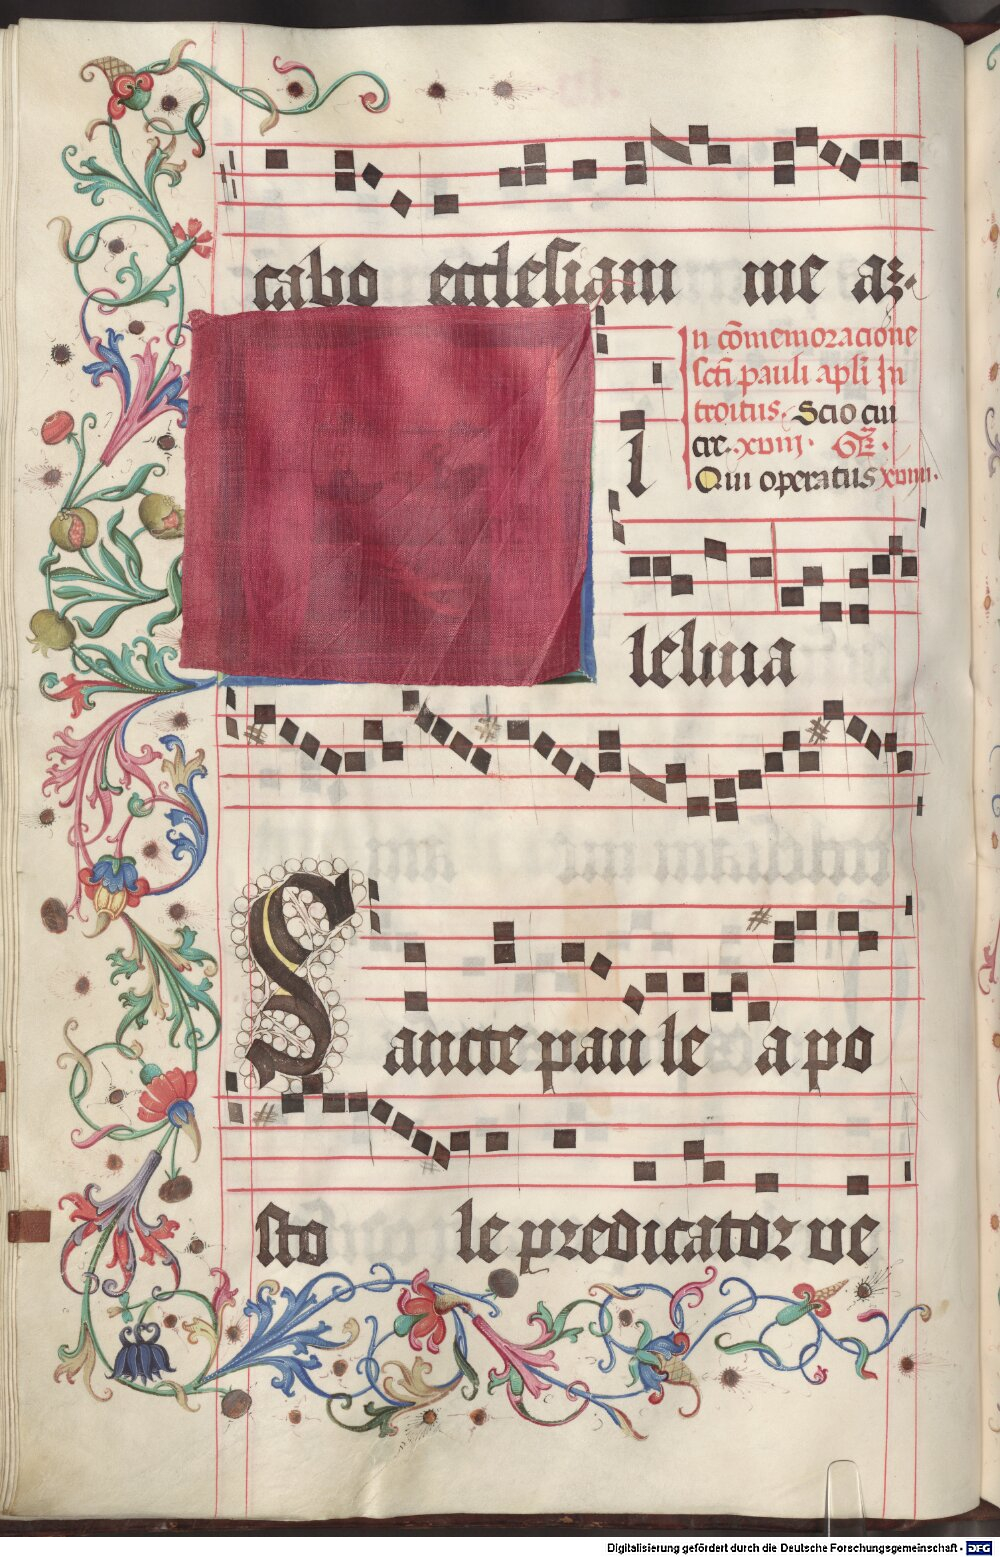 cabo ecclesiam me az.
In cōmemoracione
scti pauli apli In
troitus. Scio cui
cre. xviij. Gr̄.
Qui operatus xviiii.
l
leluia
Sancte pau le a po
sto le predicator ve
Digitalisierung gefördert durch die Deutsche Forschungsgemeinschaft - DFG